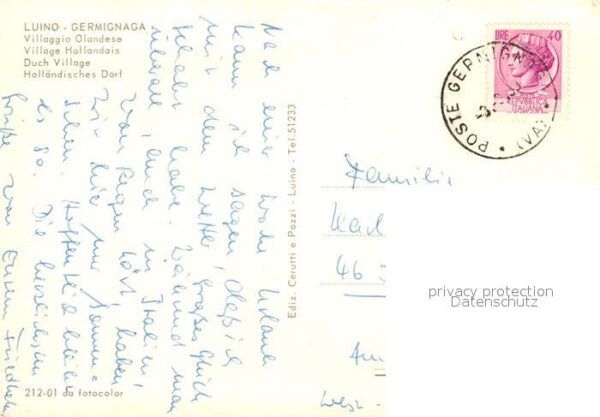 LUINO - GERMIGNAGA
Villaggio Olandese
Village Hollandais
Duch Village
Holländisches Dorf
Nach einer Woche Urlaub
kann ich sagen, daß ich
mit dem Wetter großes Glück
gehabt habe. Während man
überall, auch in Italien,
von Regen hört, haben
wir hier nur Sonnen-
schein. Hoffentlich bleibt
es so. Die herzlichsten
Grüße von Eurem Friedhelm
212-01 da fotocolor
Ediz. Cerutti e Pozzi - Luino - Tel. 51233
LIRE 40
REPUBBLICA
ITALIANA
POSTE GERMIGNAGA (VA)
Familie
Karl
46
West-
privacy protection
Datenschutz